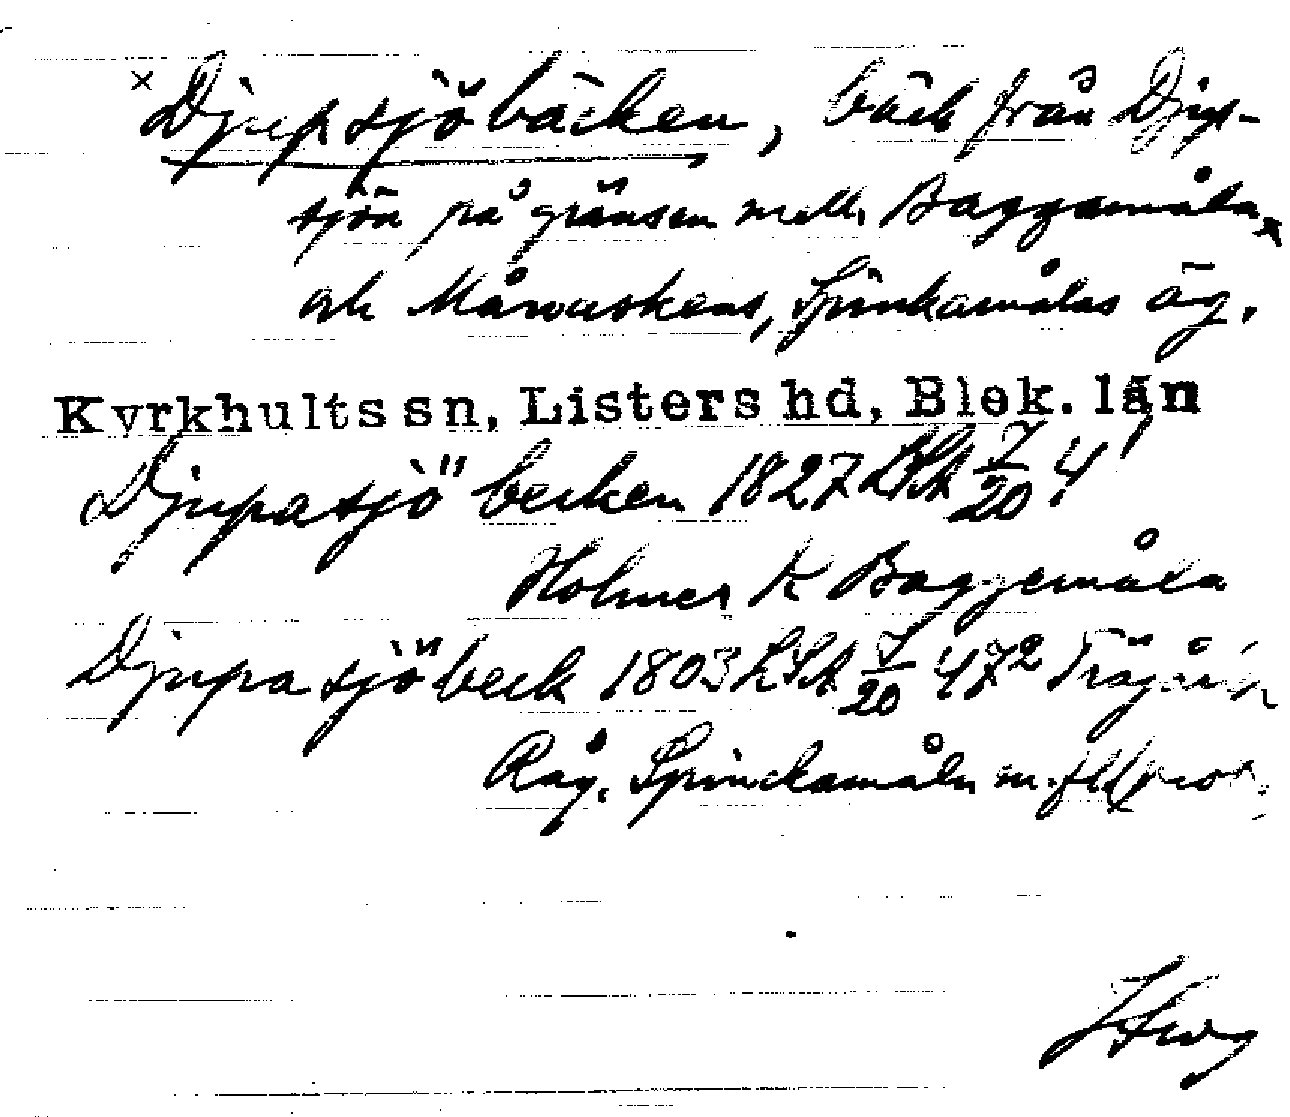 × Djupsjöbäcken, bäck från Djup-
sjön på gränsen mell. Baggemåla
och Månaskens, Spinkamålas äg.
Kyrkhults sn, Listers hd, Blek. län
Djupasjö becken 1827 LSA 7/20 4¹
Holmer K Baggemåla
Djupasjöbeck 1803 LSA 7/20 47²
Råg. Spinckamåla m. fl.